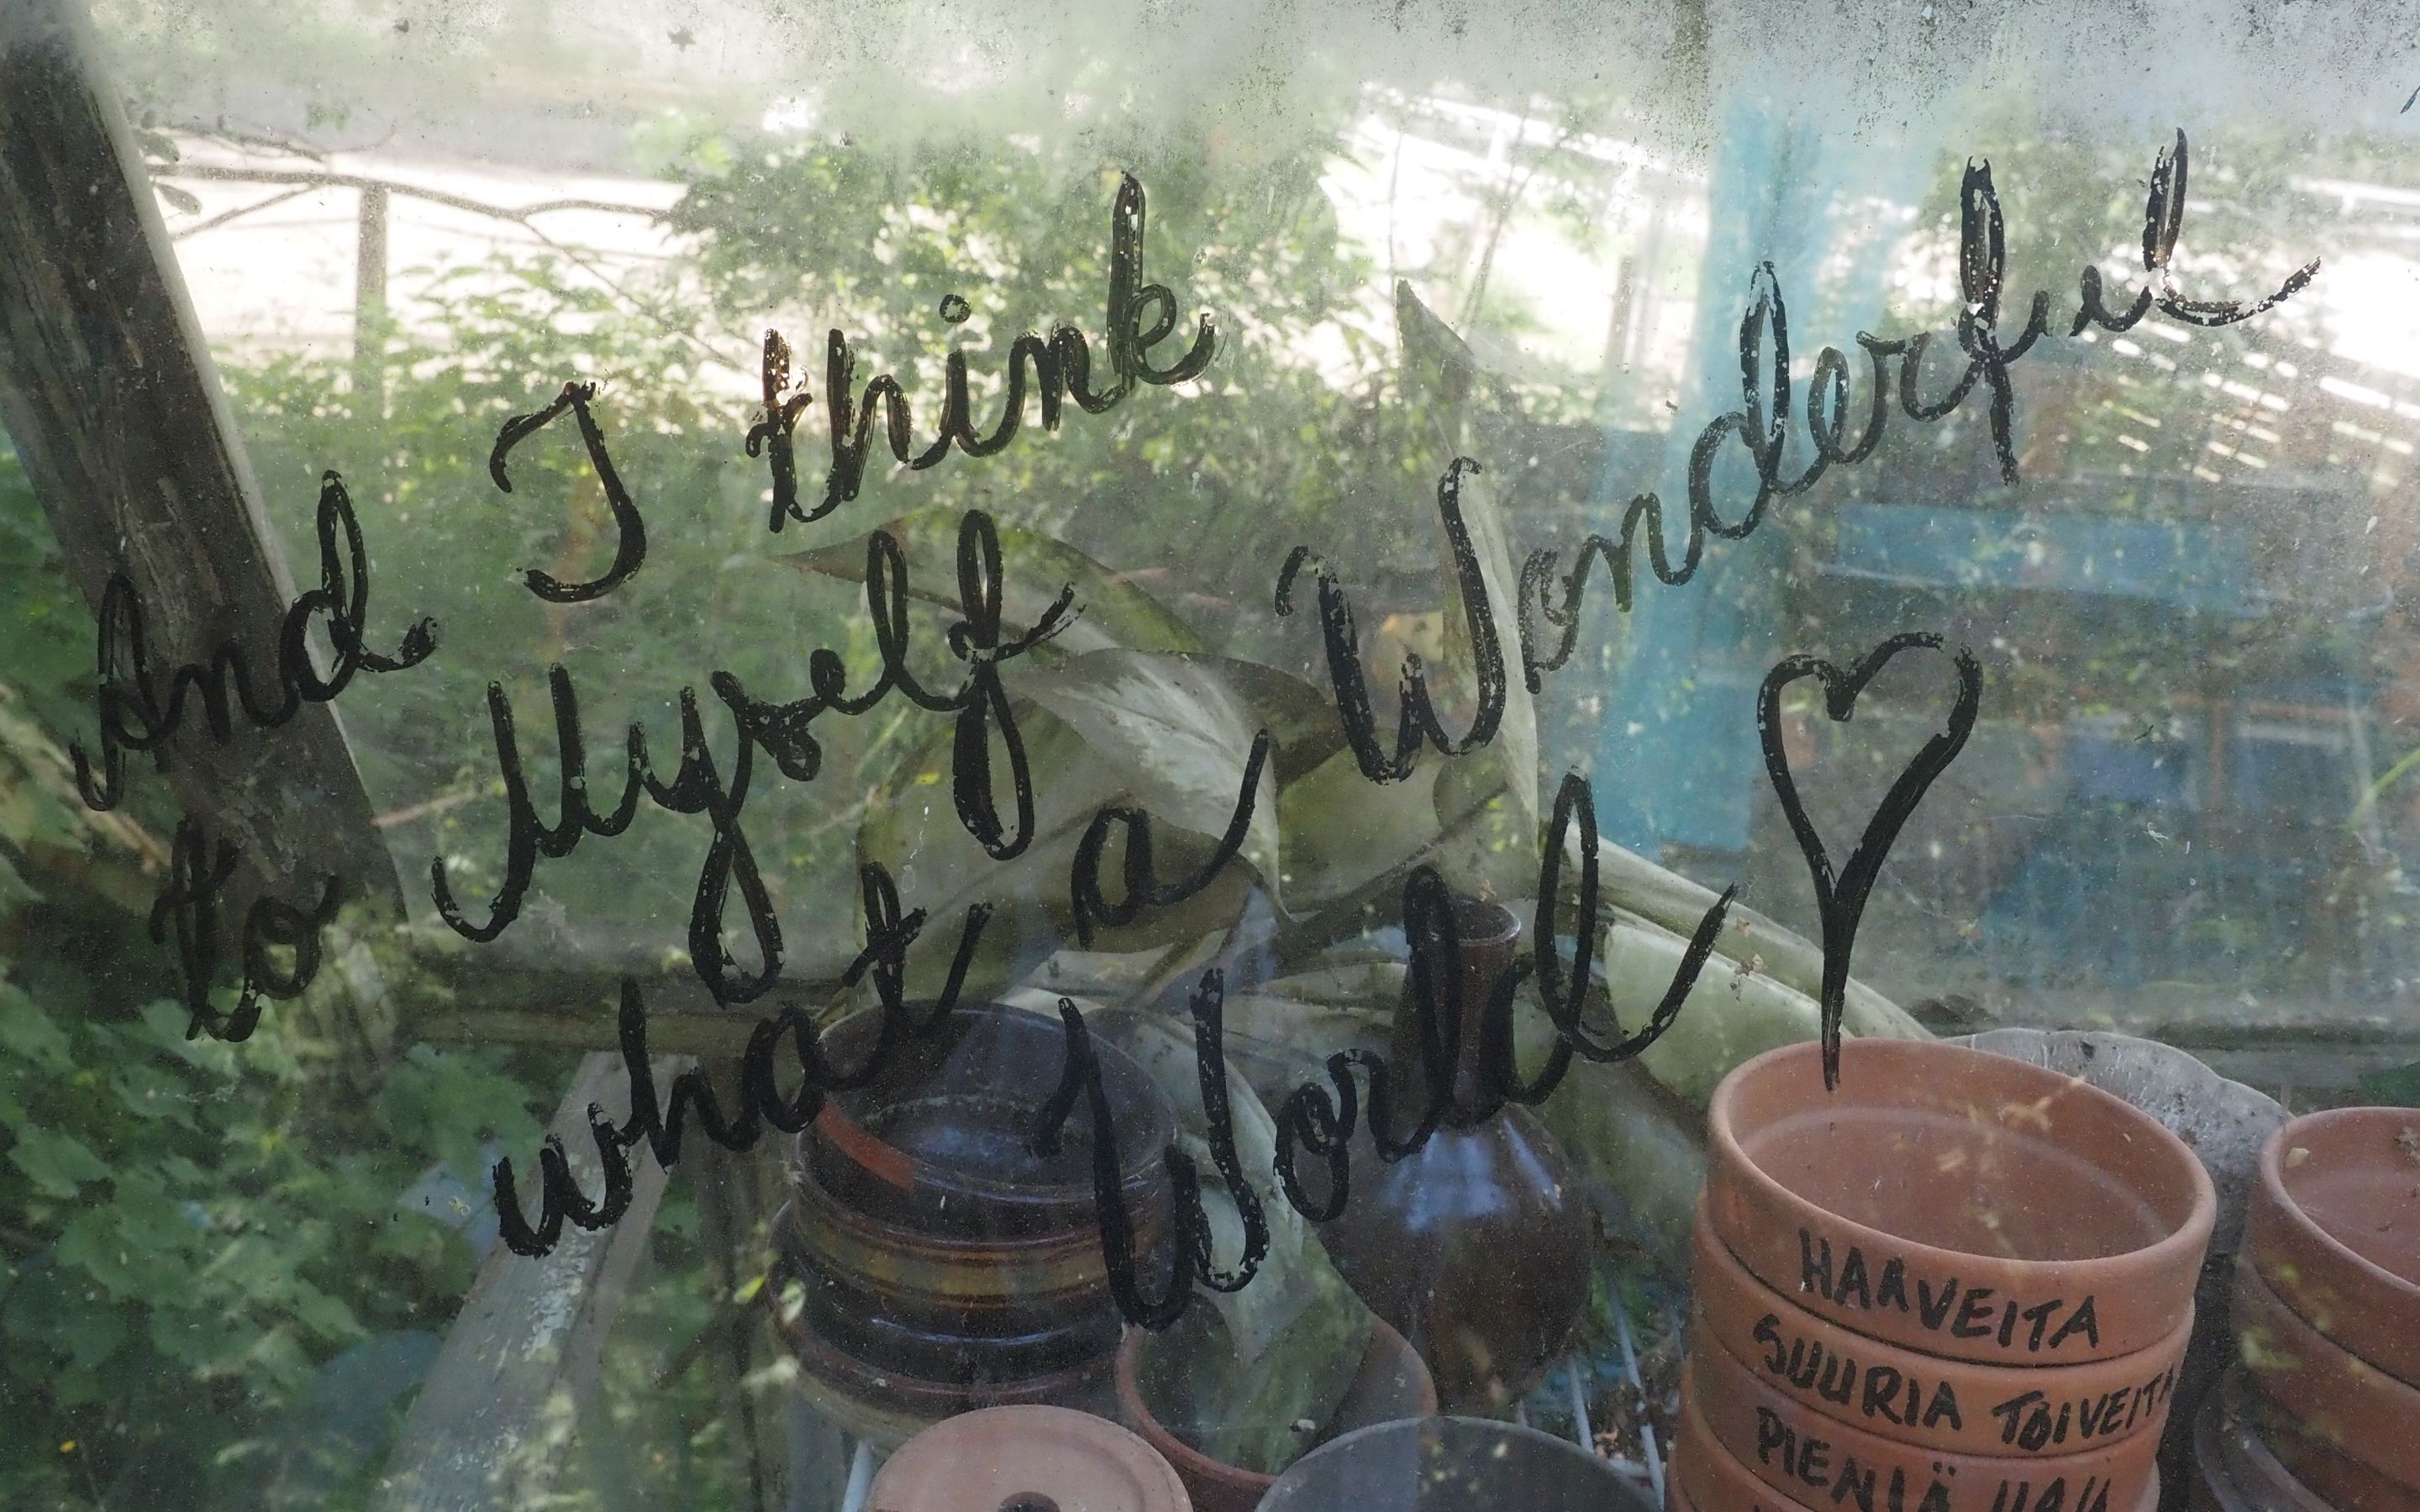 And I think
to Myself
what a Wonderful
World
HAAVEITA
SUURIA TOIVEITA
PIENIÄ